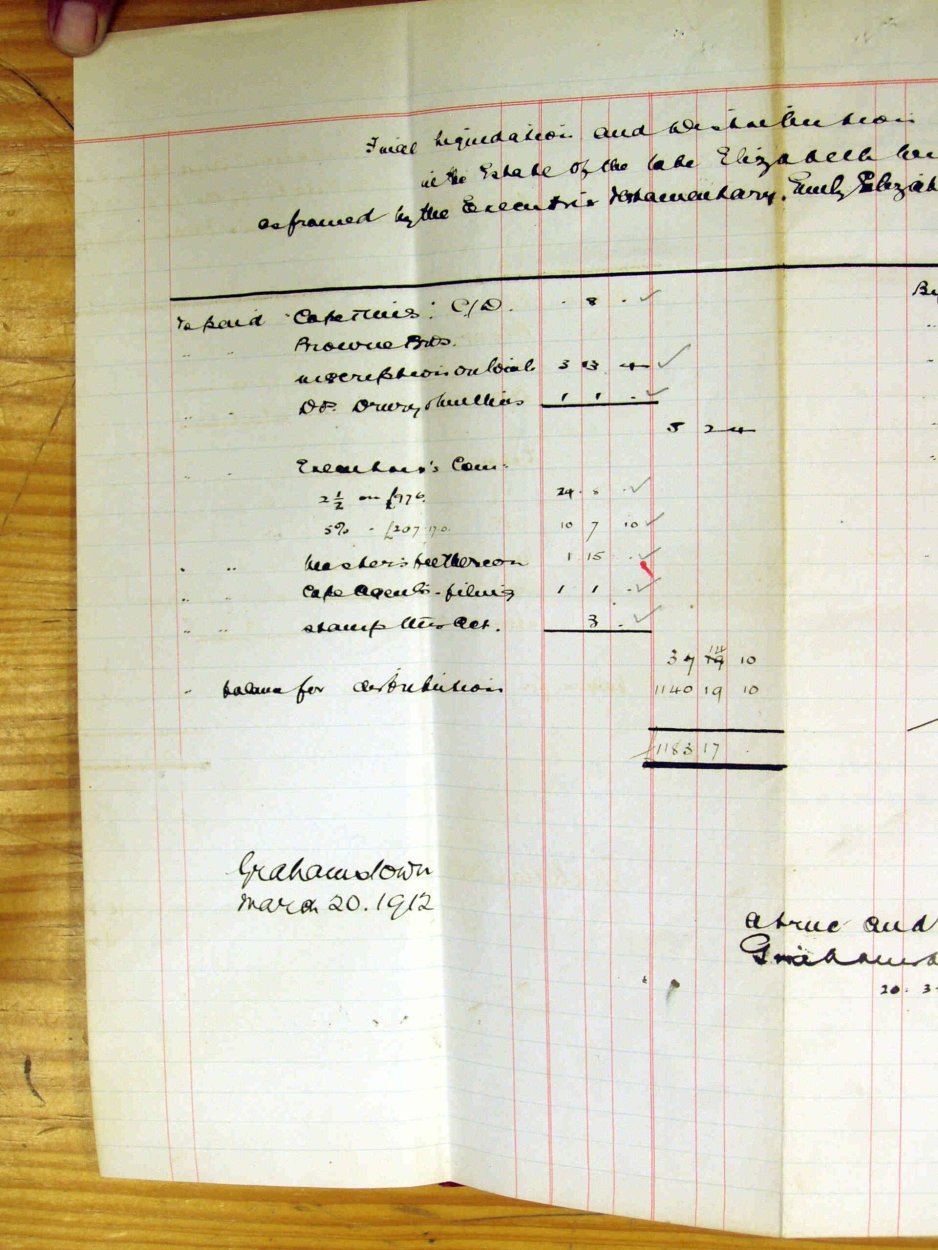 Final Liquidation and Distribution
in the Estate of the late Elizabeth
as framed by the Executrix Testamentary. Emily Elizab
To paid Cape Times: C/D. . 8 .
" " Browne Bros.
inscription on 3 13 4
" " Dr. Drury & Mullins 1 1 .
5 2 4
" " Executor's Com:
2½ on £976. 24 . 8 .
5% " £207.17.0. 10 7 10
" " Master's fee thereon 1 15 .
" " Cape Agents - filing 1 1 .
" " Stamp this Act. 3 .
37 19 14 10
" Balance for distribution 1140 19 10
£1183 17 .
Grahamstown
March 20. 1912
a true and
Grahams
20. 3